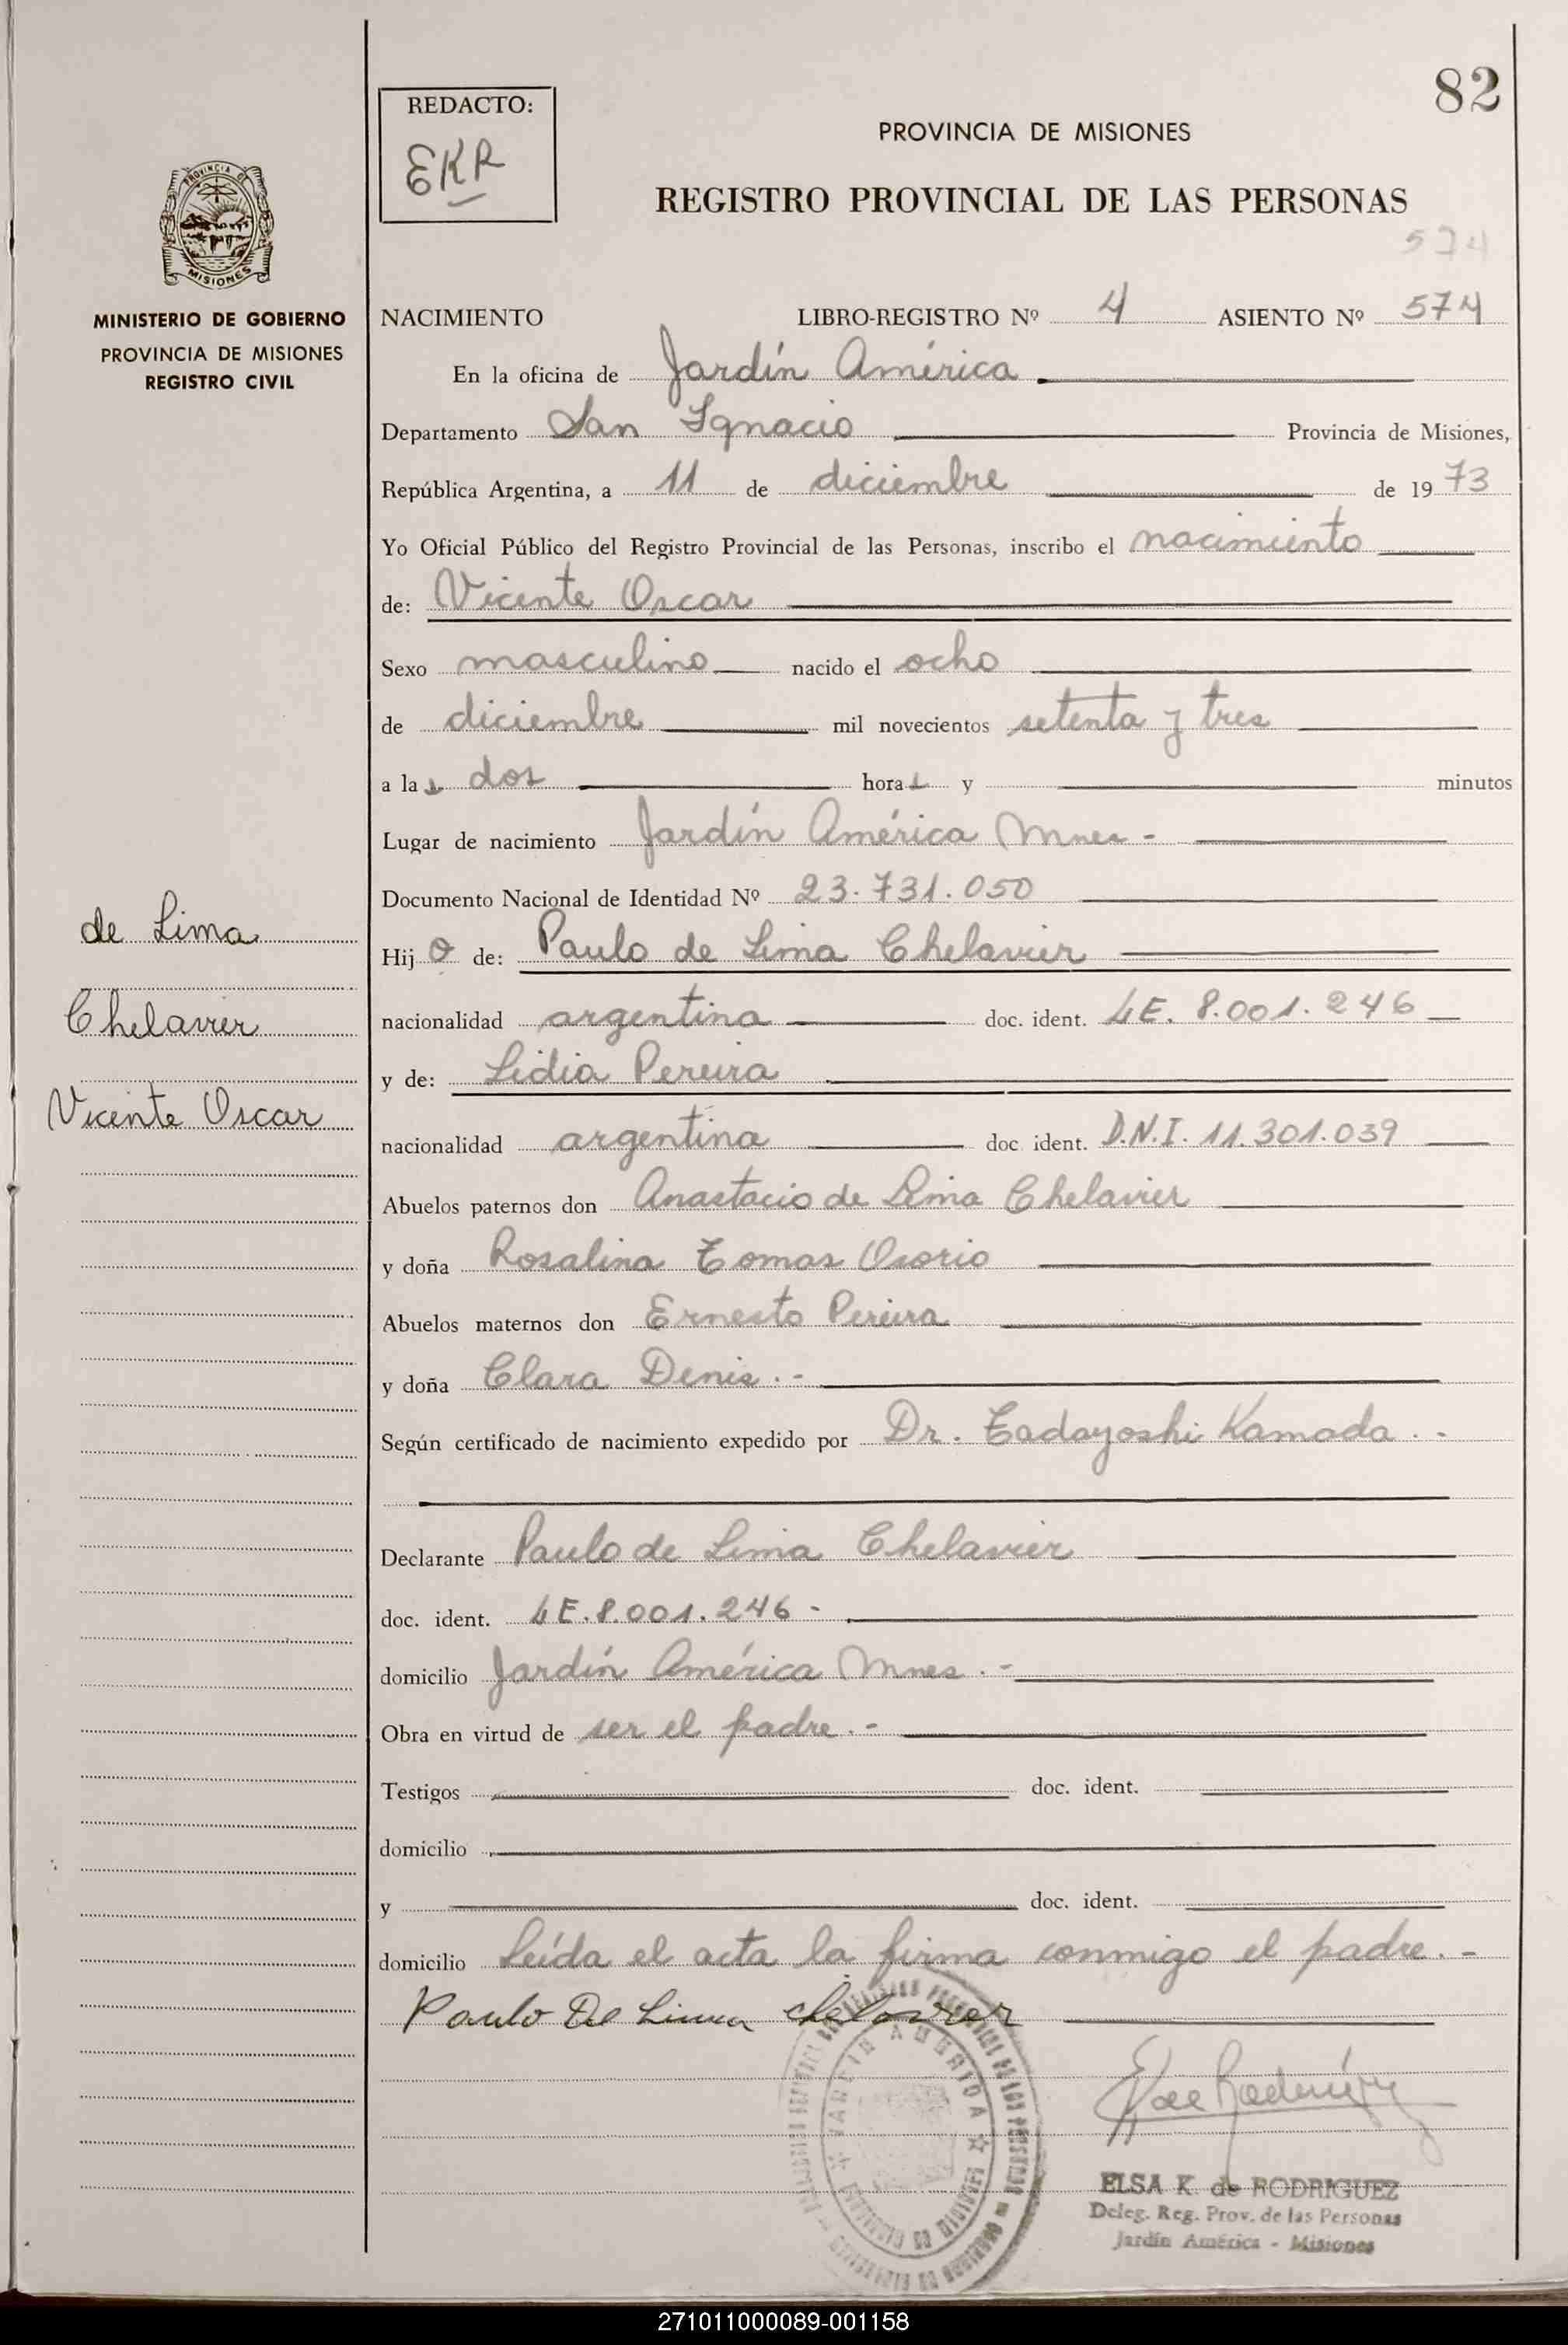 82
REDACTO:
EKR
PROVINCIA DE MISIONES
REGISTRO PROVINCIAL DE LAS PERSONAS
574
PROVINCIA DE
MISIONES
MINISTERIO DE GOBIERNO
PROVINCIA DE MISIONES
REGISTRO CIVIL
NACIMIENTO LIBRO-REGISTRO Nº 4 ASIENTO Nº 574
En la oficina de Jardín América
Departamento San Ignacio Provincia de Misiones,
República Argentina, a 11 de diciembre de 1973
Yo Oficial Público del Registro Provincial de las Personas, inscribo el nacimiento
de: Vicente Oscar
Sexo masculino nacido el ocho
de diciembre mil novecientos setenta y tres
a las dos horas y minutos
Lugar de nacimiento Jardín América Mnes -
Documento Nacional de Identidad Nº 23.731.050
de Lima
Chelavier
Vicente Oscar
Hijo de: Paulo de Lima Chelavier
nacionalidad argentina doc. ident. LE. 8.001.246
y de: Lidia Pereira
nacionalidad argentina doc. ident. D.N.I. 11.301.039
Abuelos paternos don Anastacio de Lima Chelavier
y doña Rosalina Tomas Osorio
Abuelos maternos don Ernesto Pereira
y doña Clara Denis.-
Según certificado de nacimiento expedido por Dr. Tadayoshi Kamada.-
Declarante Paulo de Lima Chelavier
doc. ident. LE.8.001.246-
domicilio Jardín América Mnes.-
Obra en virtud de ser el padre.-
Testigos doc. ident.
domicilio
y doc. ident.
domicilio Leída el acta la firma conmigo el padre.-
Paulo De Lima Chelavier
ELSA K. de RODRIGUEZ
Deleg. Reg. Prov. de las Personas
Jardín América - Misiones
271011000089-001158